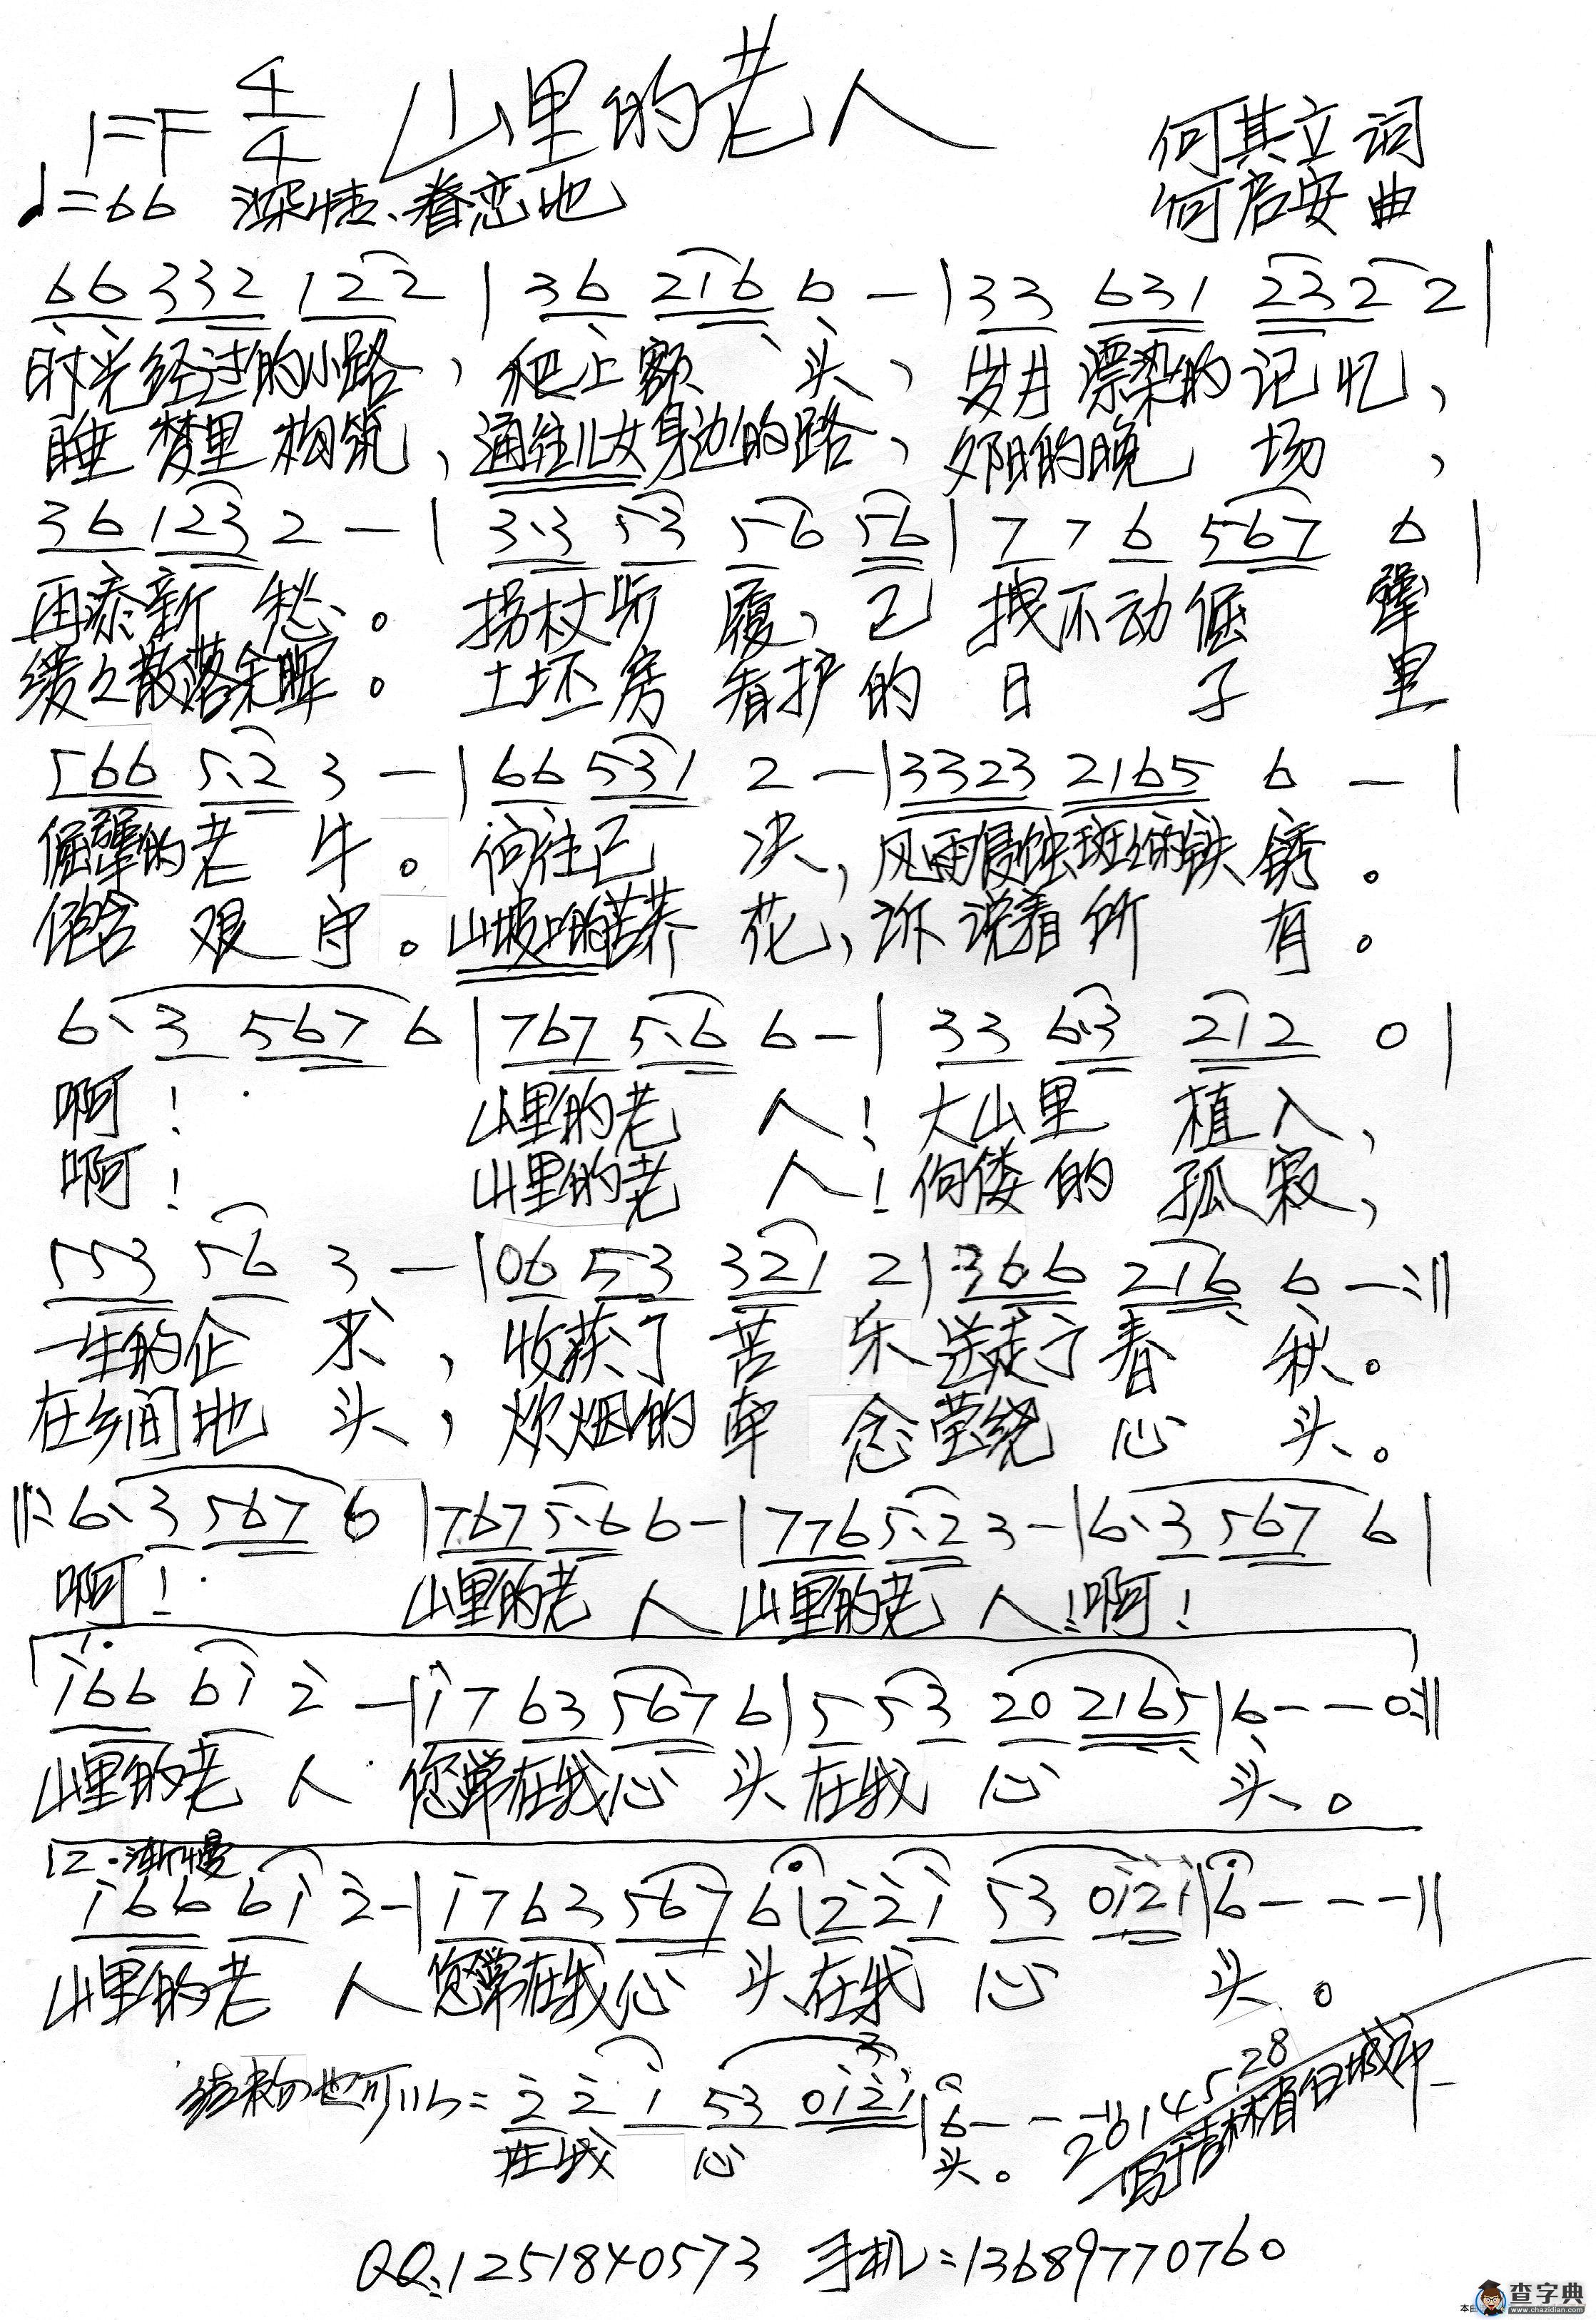 1=F 4/4 山里的老人
何其立 词
♩=66 深情、眷恋地
何启安 曲
66 332 122 2 | 36 216 6 — | 33 631 232 2 |
时光经过的小路，爬上额头，岁月漂染的记忆，
睡梦里构筑，通往儿女身边的路，夕阳的晚场，
36 123 2 — | 3.3 53 56 56 | 7 7 6 567 6 |
再添新愁。拐杖步履，已拽不动倔犟
缓々散落余晖。土坯房看护的日子里
566 5.2 3 — | 66 531 2 — | 3323 2165 6 — |
倔犟的老牛。向往已决，风雨侵蚀斑斓铁锈。
饱含艰守。山坡上的荞花，诉说着所有。
6. 3 567 6 | 767 5.6 6 — | 33 6.3 212 0 |
啊！山里的老人！大山里植入，
啊！山里的老人！佝偻的孤寂，
553 56 3 — | 06 53 321 2 | 366 216 6 — :‖
一生的企求，收获了苦乐送走了春秋。
在乡间地头，炊烟的牵念萦绕心头。
‖: 6. 3 567 6 | 767 5.6 6 — | 776 5.2 3 — | 6. 3 567 6 |
啊！山里的老人山里的老人！啊！
1.
i66 6i 2 — | i7 63 567 6 | 5 5 3 20 2165 | 6 — — 0 :‖
山里的老人 您常在我心头在我心头。
2. 渐慢
i66 6i 2 — | i7 63 567 6 | 2 2 i 53 0i2i | 6 — — — ‖
山里的老人您常在我心头在我心头。
结束句也可以= 2 2 i 53 0i2i | 6 — — — ‖
在我心头。
2014.5.28
写于吉林省白城市
QQ:1251840573 手机:13689770760
查字典
www.chazidian.com